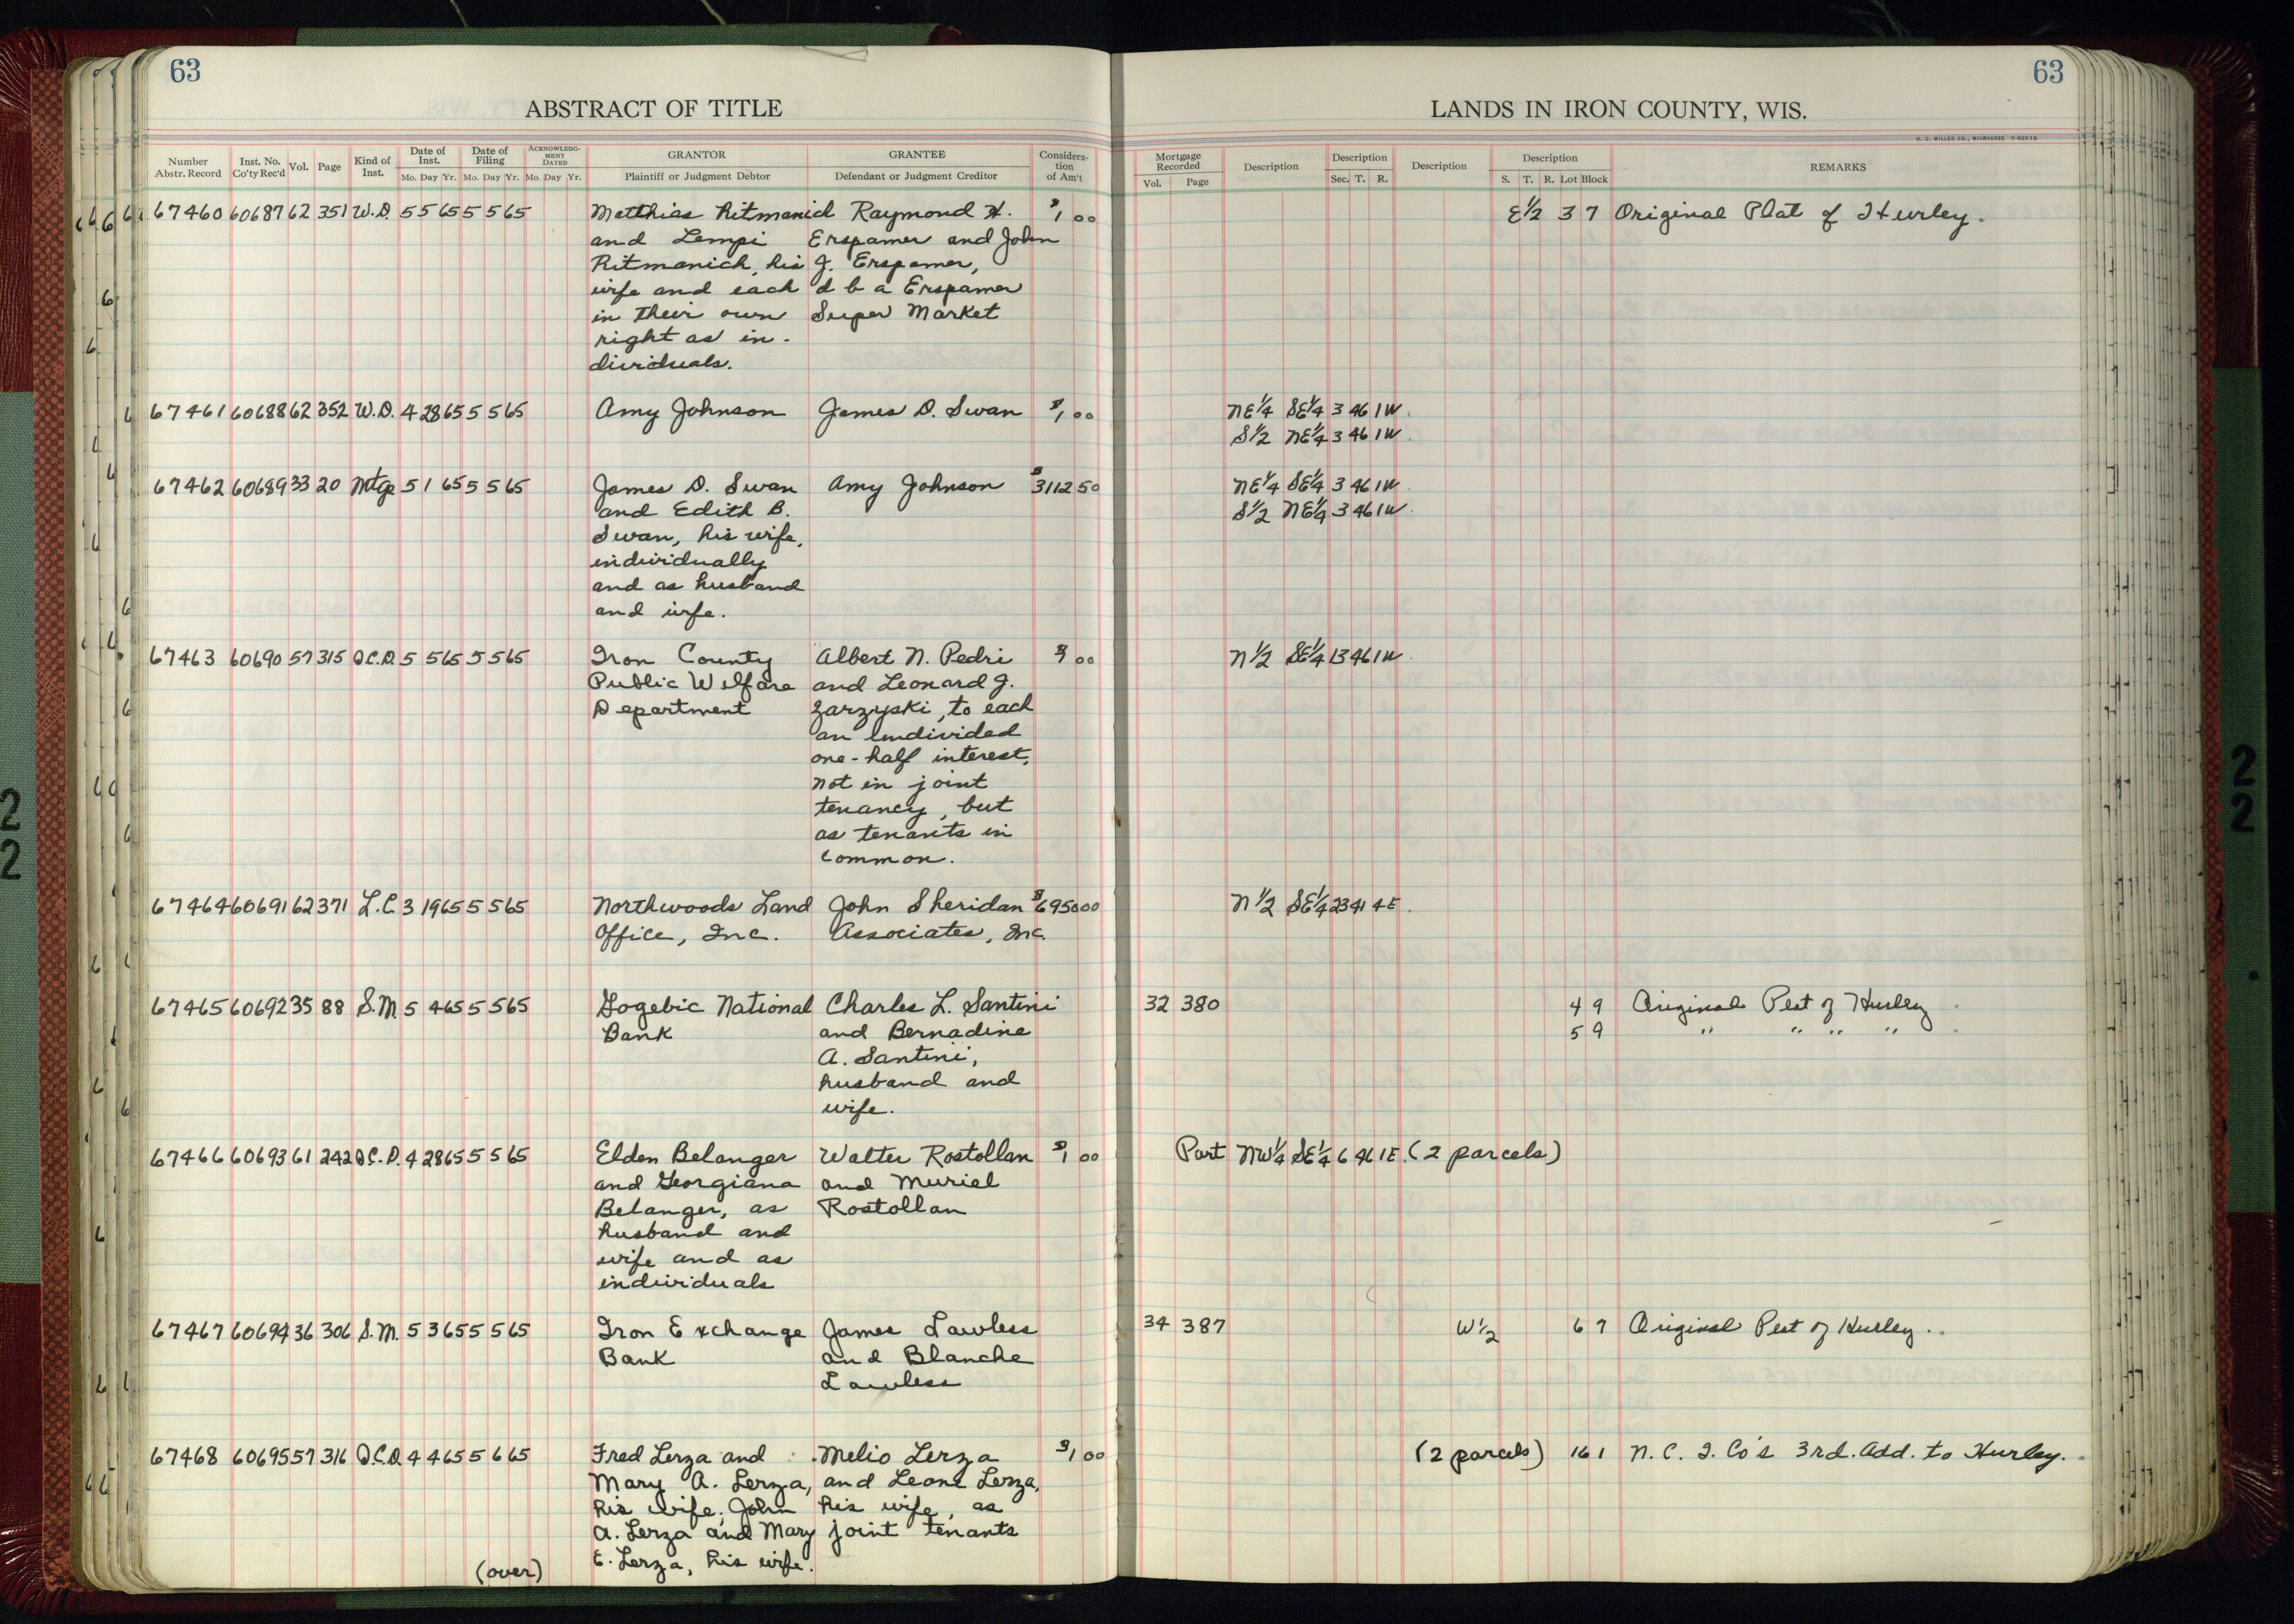 63
63
ABSTRACT OF TITLE
LANDS IN IRON COUNTY, WIS.
H. C. MILLER CO., MILWAUKEE
Number Abstr. Record Inst. No. Co'ty Rec'd Vol. Page Kind of Inst. Date of Inst. Mo. Day Yr. Date of Filing Mo. Day Yr. ACKNOWLEDGMENT DATED Mo. Day Yr. GRANTOR Plaintiff or Judgment Debtor GRANTEE Defendant or Judgment Creditor Consideration of Am't
Mortgage Recorded Vol. Page Description Description Sec. T. R. Description Description S. T. R. Lot Block REMARKS
67460 60687 62 351 W.D. 5 5 65 5 5 65 Matthias Ritmanich Raymond H. $1 00 E½ 3 7 Original Plat of Hurley.
and Lempi Erspamer and John
Ritmanich, his J. Erspamer,
wife and each d b a Erspamer
in their own Super Market
right as in-
dividuals.
67461 60688 62 352 W.D. 4 28 65 5 5 65 Amy Johnson James D. Swan $1 00 NE¼ SE¼ 3 46 1W.
S½ NE¼ 3 46 1W.
67462 60689 33 20 Mtge 5 1 65 5 5 65 James D. Swan Amy Johnson $3112 50 NE¼ SE¼ 3 46 1W.
and Edith B. S½ NE¼ 3 46 1W.
Swan, his wife,
individually
and as husband
and wife.
67463 60690 57 315 Q.C.D. 5 5 65 5 5 65 Iron County Albert N. Pedri $1 00 N½ SE¼ 13 46 1W.
Public Welfare and Leonard J.
Department Zarzyski, to each
an undivided
one-half interest,
not in joint
tenancy, but
as tenants in
common.
67464 60691 62 371 L.C. 3 19 65 5 5 65 Northwoods Land John Sheridan $6950 00 N½ SE¼ 23 41 4E.
Office, Inc. Associates, Inc.
67465 60692 35 88 S.M. 5 4 65 5 5 65 Gogebic National Charles L. Santini 32 380 4 9 Original Plat of Hurley
Bank and Bernadine 5 9 " " " "
A. Santini,
husband and
wife.
67466 60693 61 242 Q.C.D. 4 28 65 5 5 65 Elden Belanger Walter Rostollan $1 00 Part NW¼ SE¼ 6 46 1E. (2 parcels)
and Georgiana and Muriel
Belanger, as Rostollan
husband and
wife and as
individuals
67467 60694 36 306 S.M. 5 3 65 5 5 65 Iron Exchange James Lawless 34 387 W½ 6 7 Original Plat of Hurley.
Bank and Blanche
Lawless
67468 60695 57 316 Q.C.D. 4 4 65 5 6 65 Fred Lerza and Melio Lerza $1 00 (2 parcels) 16 1 N. C. I. Co's 3rd. Add. to Hurley.
Mary A. Lerza, and Leone Lerza,
his wife; John his wife, as
A. Lerza and Mary joint tenants
E. Lerza, his wife.
(over)
2
2
2
2